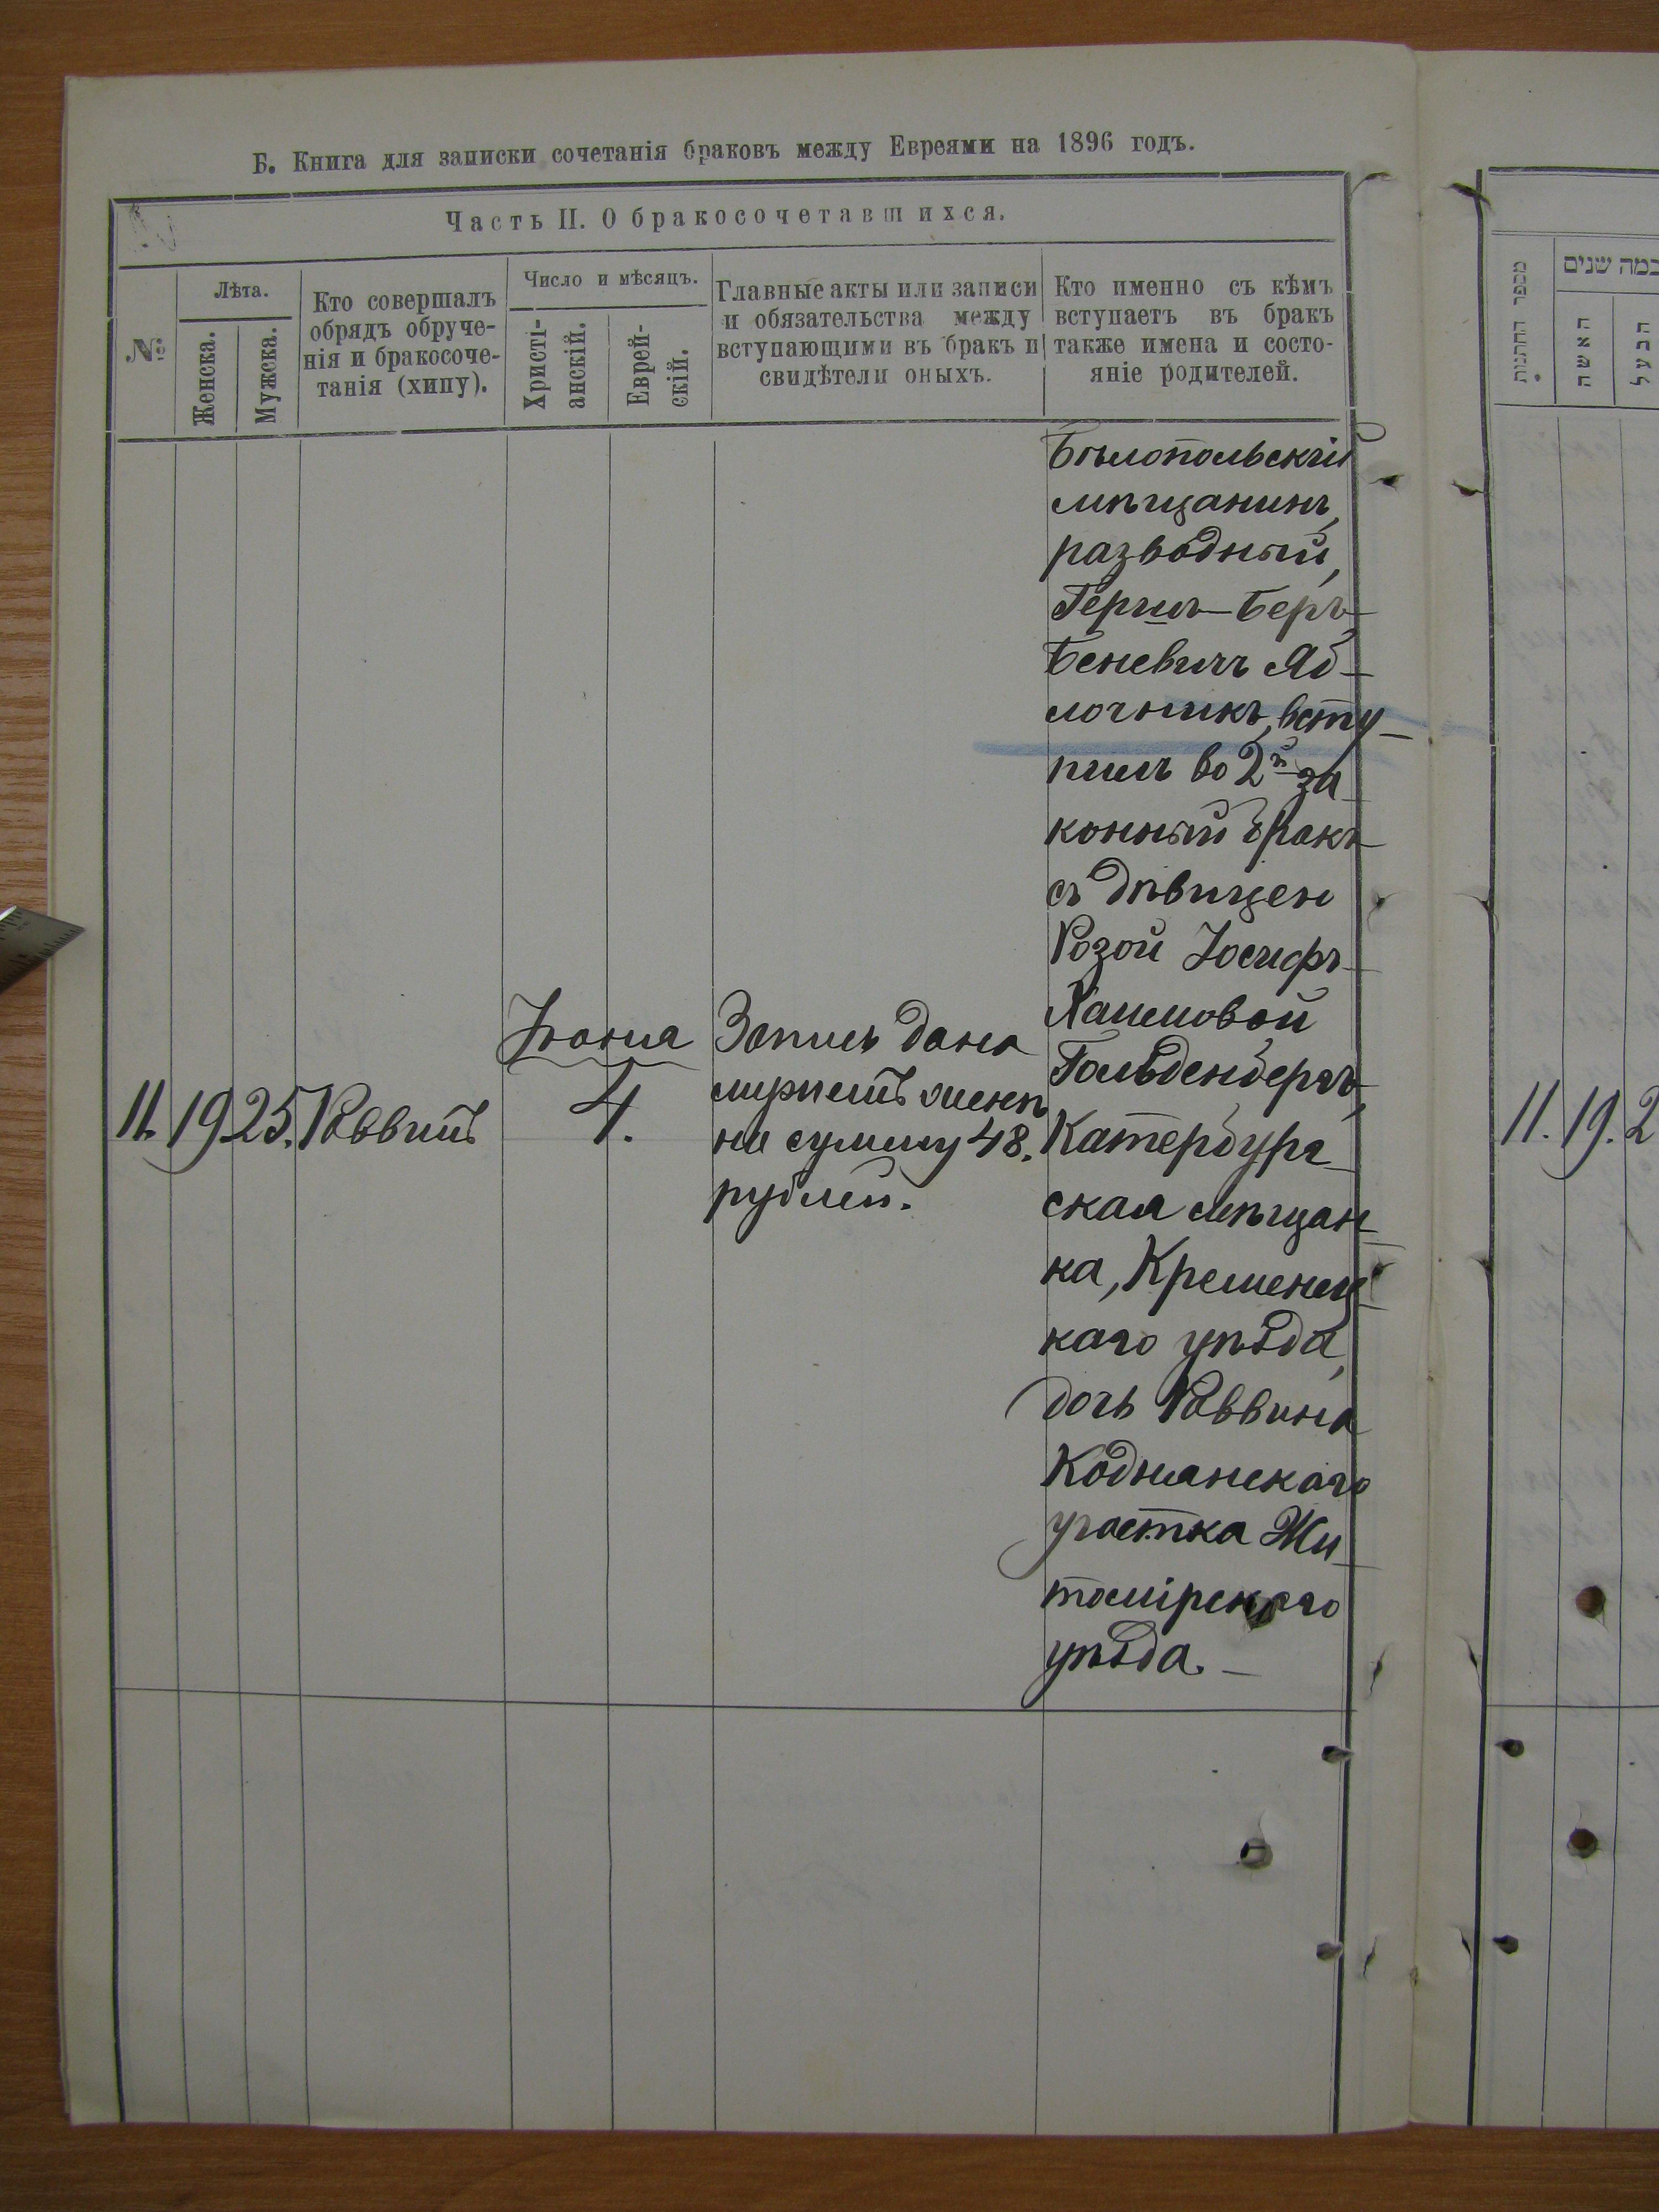 Б. Книга для записки сочетанія браковъ между Евреями на 1896 годъ.
Часть II. О бракосочетавшихся.
№
Лѣта.
Женска.
Мужска.
Кто совершалъ
обрядъ обруче-
нія и бракосоче-
танія (хипу).
Число и мѣсяцъ.
Христі-
анскій.
Еврей-
скій.
Главные акты или записи
и обязательства между
вступающими въ бракъ и
свидѣтели оныхъ.
Кто именно съ кѣмъ
вступаетъ въ бракъ
также имена и состо-
яніе родителей.
11. 19 25. Раввинъ
Іюня
4.
Запись дана
мужемъ женѣ
на сумму 48.
рублей.
Бѣлопольскій
мѣщанинъ,
разводный,
Гершъ-Беръ
Беневичъ Яб-
лочникъ, всту-
пилъ во 2й за-
конный бракъ
съ дѣвицею
Розой Іосифъ-
Хаимовой
Гольденбергъ,
Катербург-
ская мѣщан-
ка, Кременец-
каго уѣзда,
дочь Раввина
Коднянскаго
участка Жи-
томірскаго
уѣзда. —
מספר החתונות
כמה שנים
האשה
הבעל
11. 19. 2